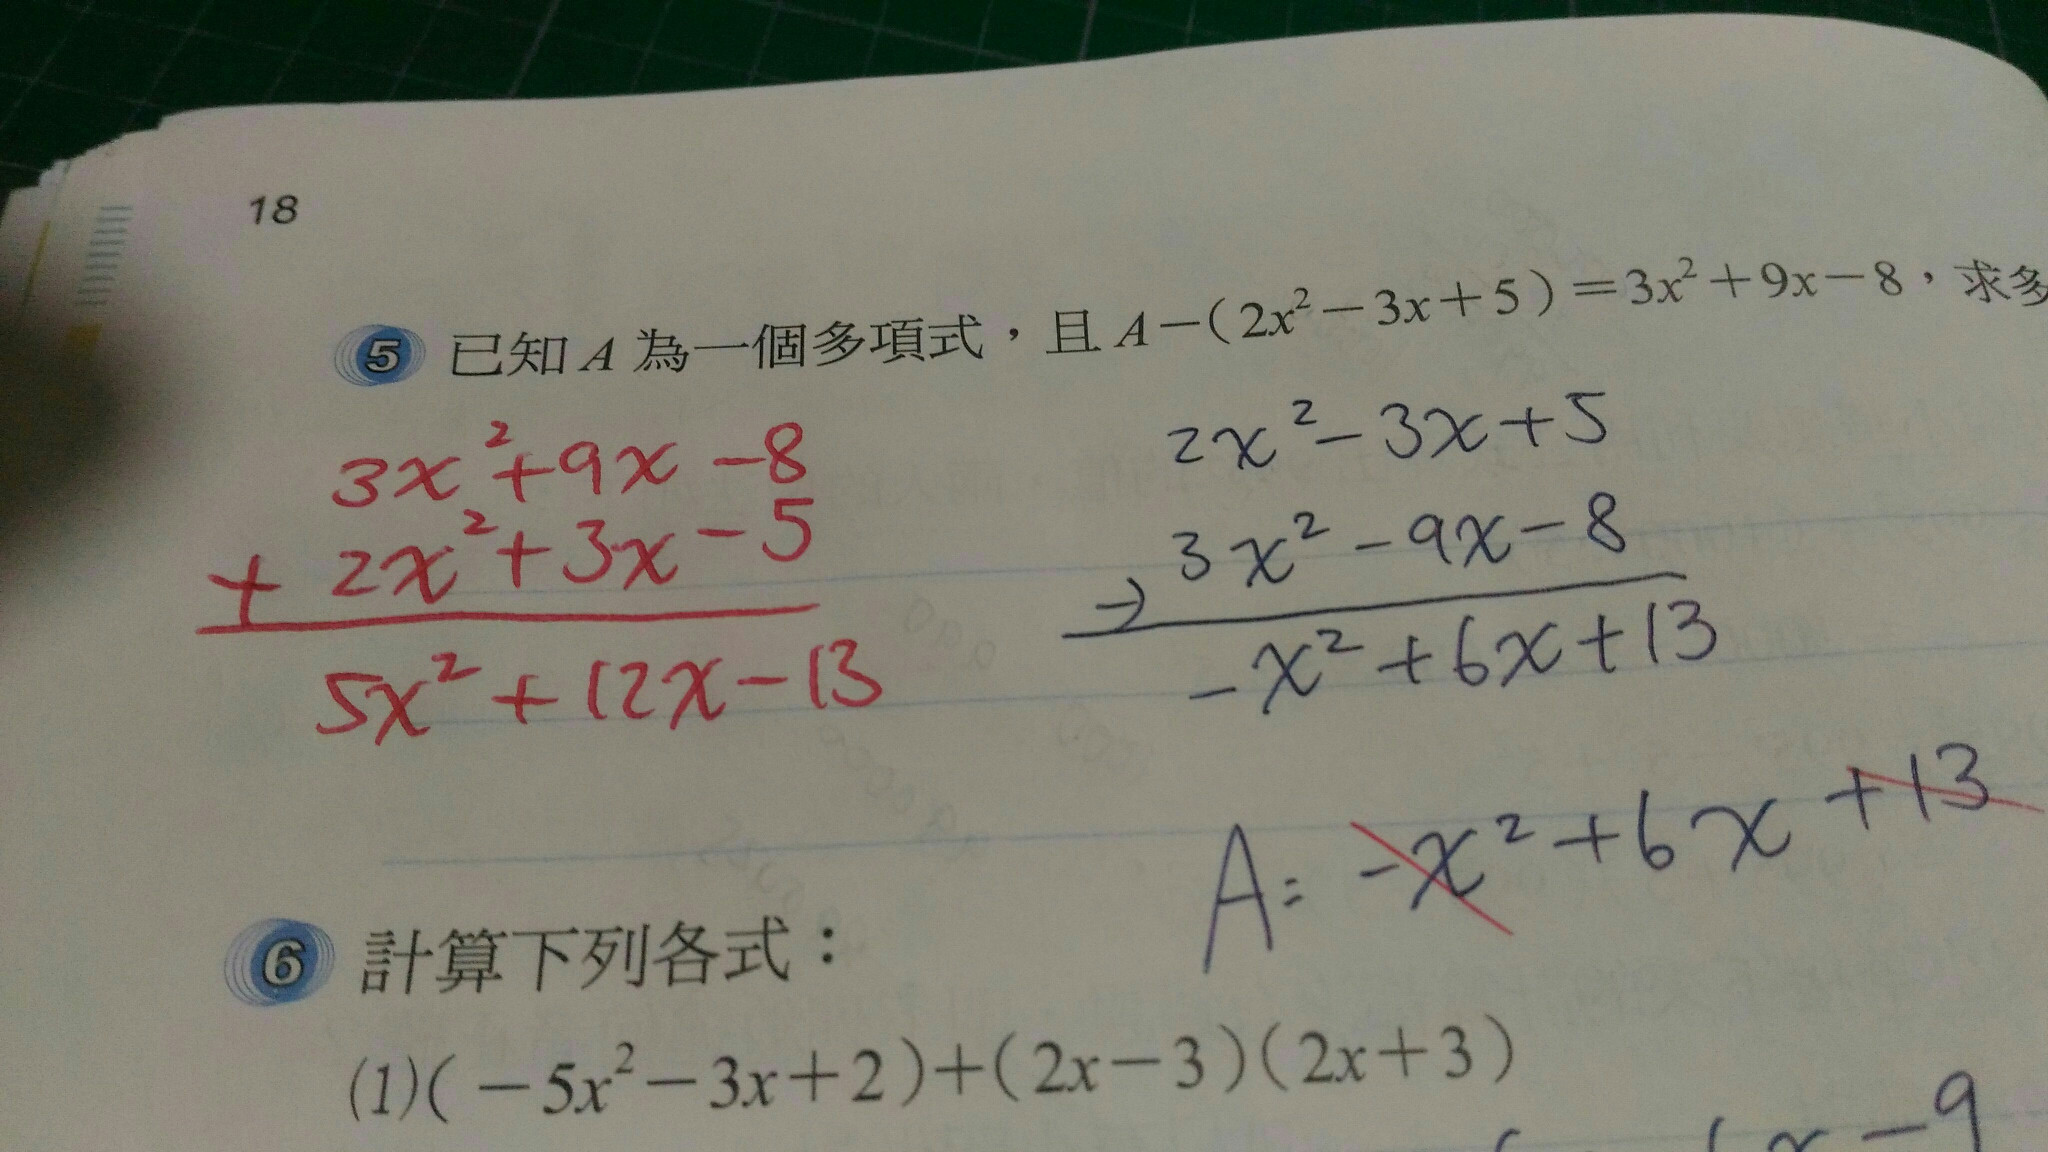 18
5 已知 A 為一個多項式，且 A－(2x²－3x＋5)＝3x²＋9x－8，求多
3x²+9x-8
+ 2x²+3x-5
5x²+12x-13
2x²-3x+5
-) 3x²-9x-8
-x²+6x+13
A= -x²+6x+13
6 計算下列各式：
(1)(－5x²－3x＋2)＋(2x－3)(2x＋3)
x-9